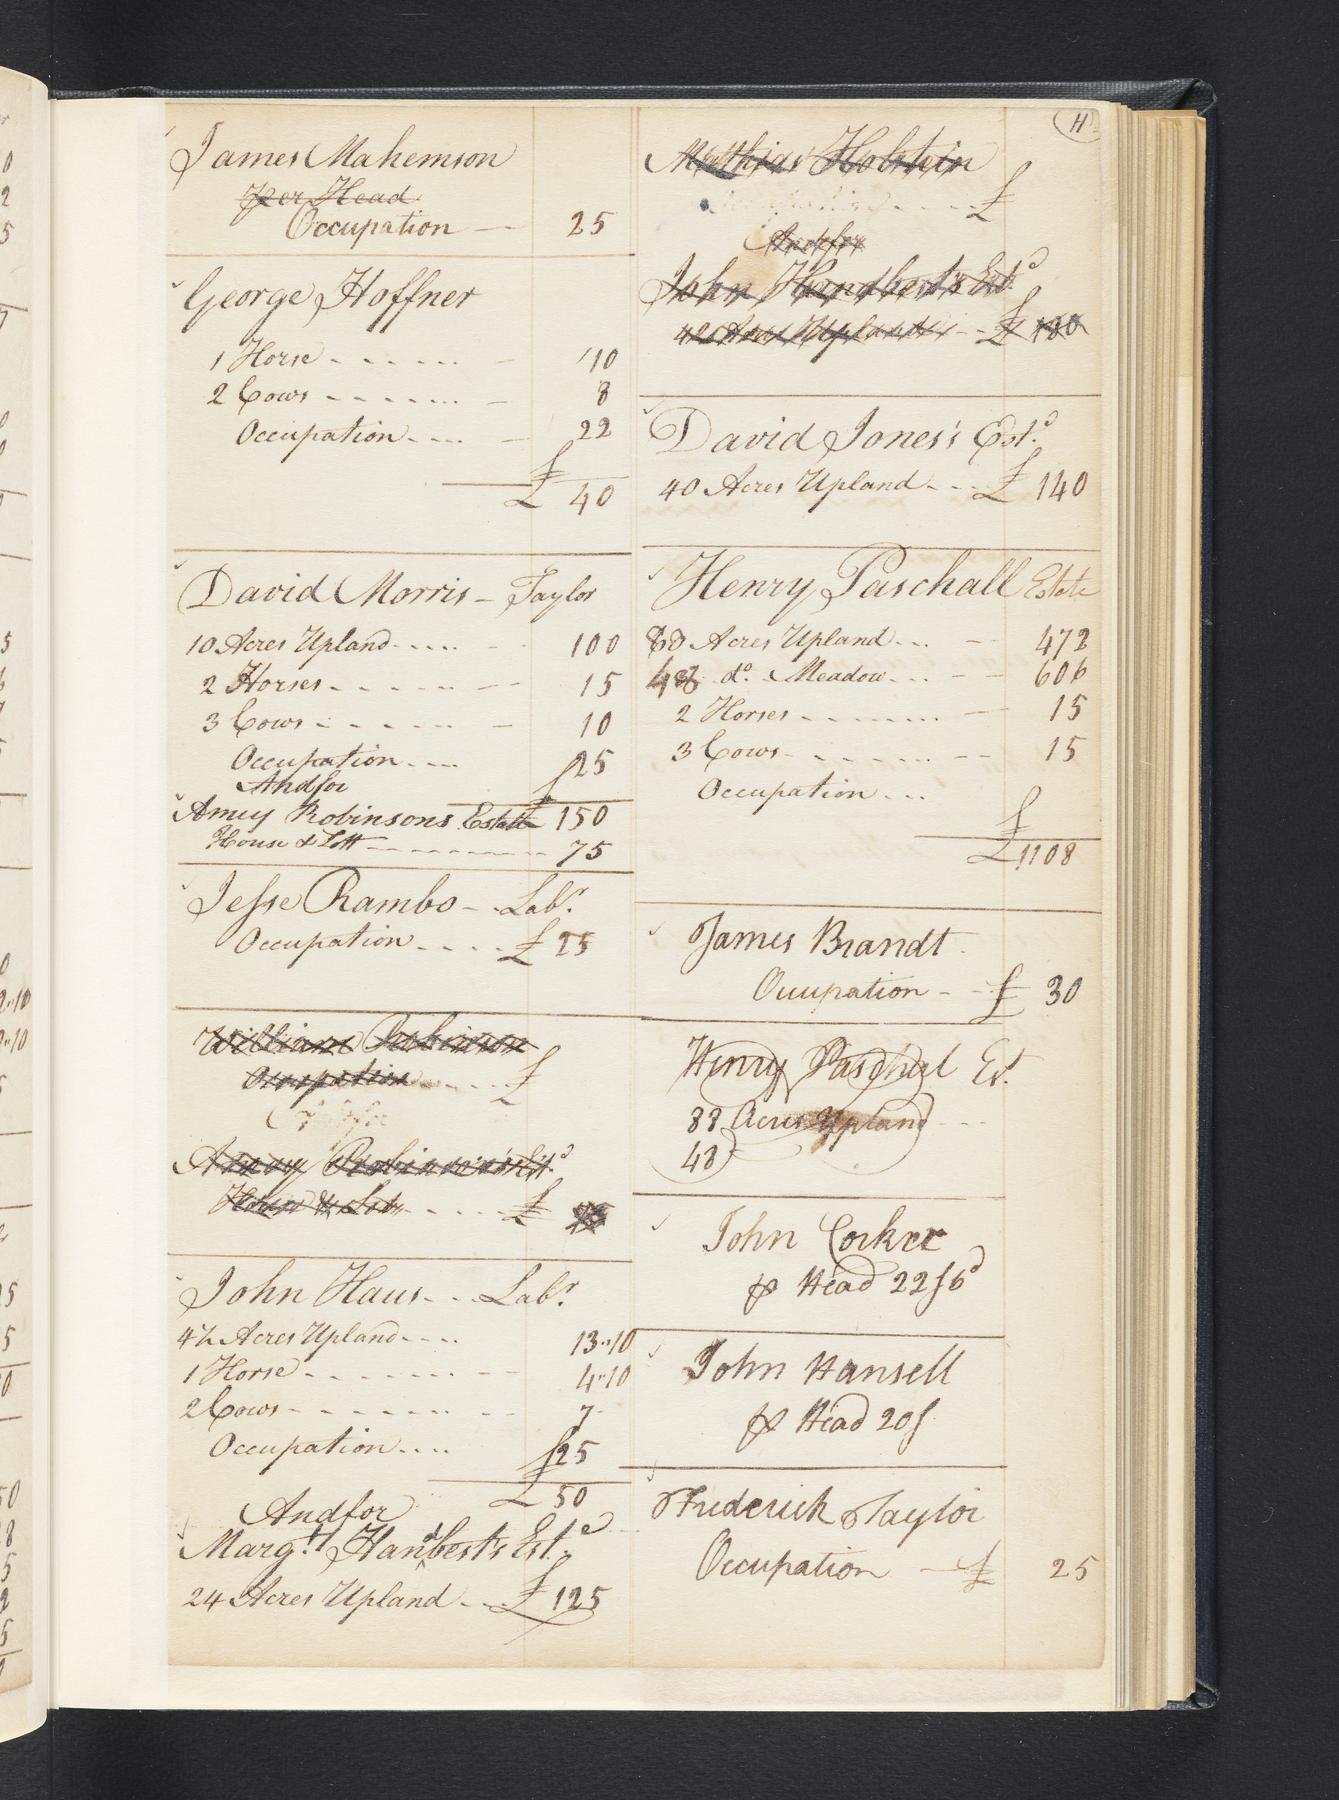 James Mahemson
per Head
Occupation — 25
George Hoffner
1 Horse - - - - - - 10
2 Cows - - - - - - 8
Occupation - - - - 22
£ 40
David Morris - Taylor
10 Acres Upland - - - - 100
2 Horses - - - - - 15
3 Cows - - - - - 10
Occupation - - - - 25
And for £ 150
Amey Robinsons Estate
House & Lott - - - - - - 75
Jesse Rambo - Labr.
Occupation - - - - £ 25
William Robinson
Occupation - - - - £
Amey Robinson's Estd
House & Lott - - - - £ 75
John Haus - - Labr.
4½ Acres Upland - - - - 13..10
1 Horse - - - - - - 4..10
2 Cows - - - - - - 7
Occupation - - - - 25
£ 50
And for
Margt. Handbest's Este.
24 Acres Upland - - £ 125
11
Mathias Holstein
£
And for
John Handbest's Estd
42 Acres Upland - - £ 180
David Jones's Estd.
40 Acres Upland - - - £ 140
Henry Paschall Estate
Acres Upland - - - 472
do. Meadow - - - 606
2 Horses - - - - - - 15
3 Cows - - - - - - 15
Occupation - - -
£ 1108
James Brandt
Occupation - - £ 30
Henry Paschal Est.
88 Acres Upland - - -
48
John Corker
per Head 22s 6d
John Hansell
per Head 20s
Frederick Taylor
Occupation — £ 25